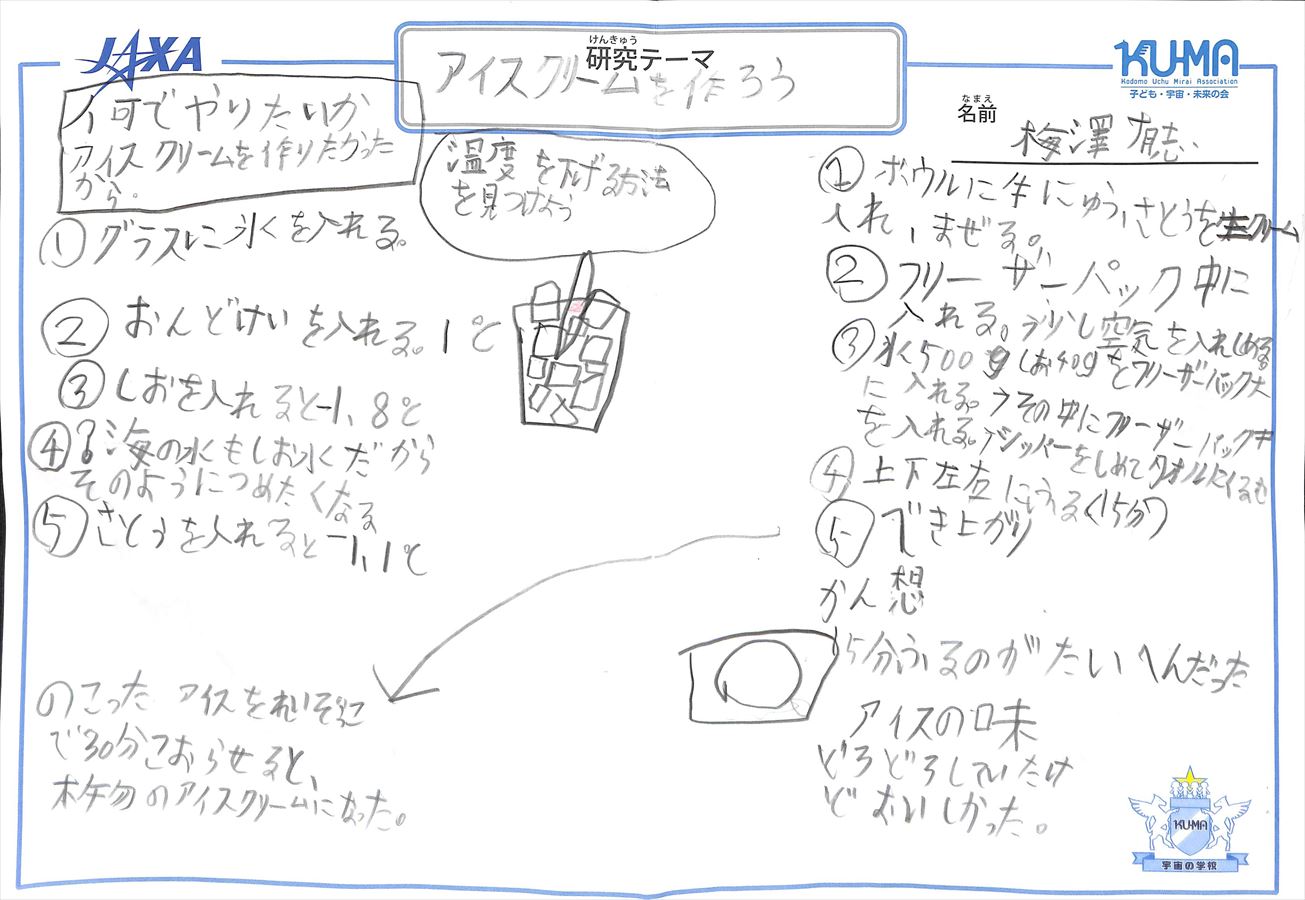 JAXA
けんきゅう
研究テーマ
アイスクリームを作ろう
KUMA
Kodomo Uchu Mirai Association
子ども・宇宙・未来の会
なまえ
名前
梅澤
何でやりたいか
アイスクリームを作りたかった
から。
温度を下げる方法
を見つけよう
①グラスに氷を入れる。
②おんどけいを入れる。1℃
③しおを入れると-1,8℃
④海の水もしお水だから
そのようにつめたくなる
⑤さとうを入れると-1,1℃
のこったアイスをれいぞうこ
で30分こおらせると、
本物のアイスクリームになった。
①ボウルに牛にゅう,さとうを生クリーム
入れ、まぜる。
②フリーザーパック中に
入れる。少し空気を入れしめる
③氷500gしお40gをフリーザーパック大
に入れる。→その中にフリーザーパック中
を入れる。→ジッパーをしめてタオルにくるむ
④上下左右にふる(15分)
⑤でき上がり
かん想
15分ふるのがたいへんだった
アイスの味
どろどろしていたけ
どおいしかった。
KUMA
宇宙の学校